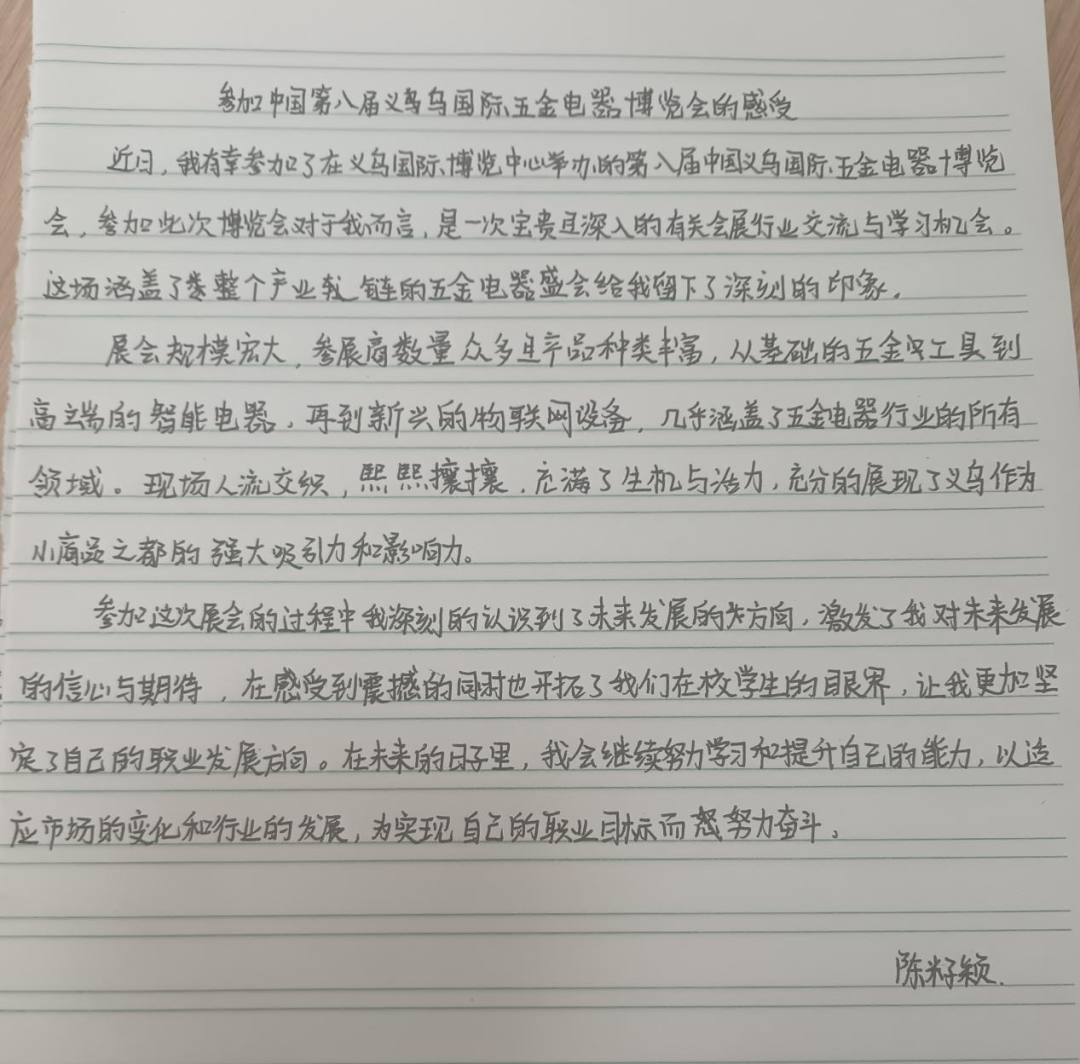 参加中国第八届义乌国际五金电器博览会的感受
近日，我有幸参加了在义乌国际博览中心举办的第八届中国义乌国际五金电器博览
会，参加此次博览会对于我而言，是一次宝贵且深入的有关会展行业交流与学习机会。
这场涵盖了整个产业链的五金电器盛会给我留下了深刻的印象。
展会规模宏大，参展商数量众多且产品种类丰富，从基础的五金工具到
高端的智能电器，再到新兴的物联网设备，几乎涵盖了五金电器行业的所有
领域。现场人流交织，熙熙攘攘，充满了生机与活力，充分的展现了义乌作为
小商品之都的强大吸引力和影响力。
参加这次展会的过程中我深刻的认识到了未来发展的方向，激发了我对未来发展
的信心与期待，在感受到震撼的同时也开拓了我们在校学生的眼界，让我更加坚
定了自己的职业发展方向。在未来的日子里，我会继续努力学习和提升自己的能力，以适
应市场的变化和行业的发展，为实现自己的职业目标而努力奋斗。
陈籽颖